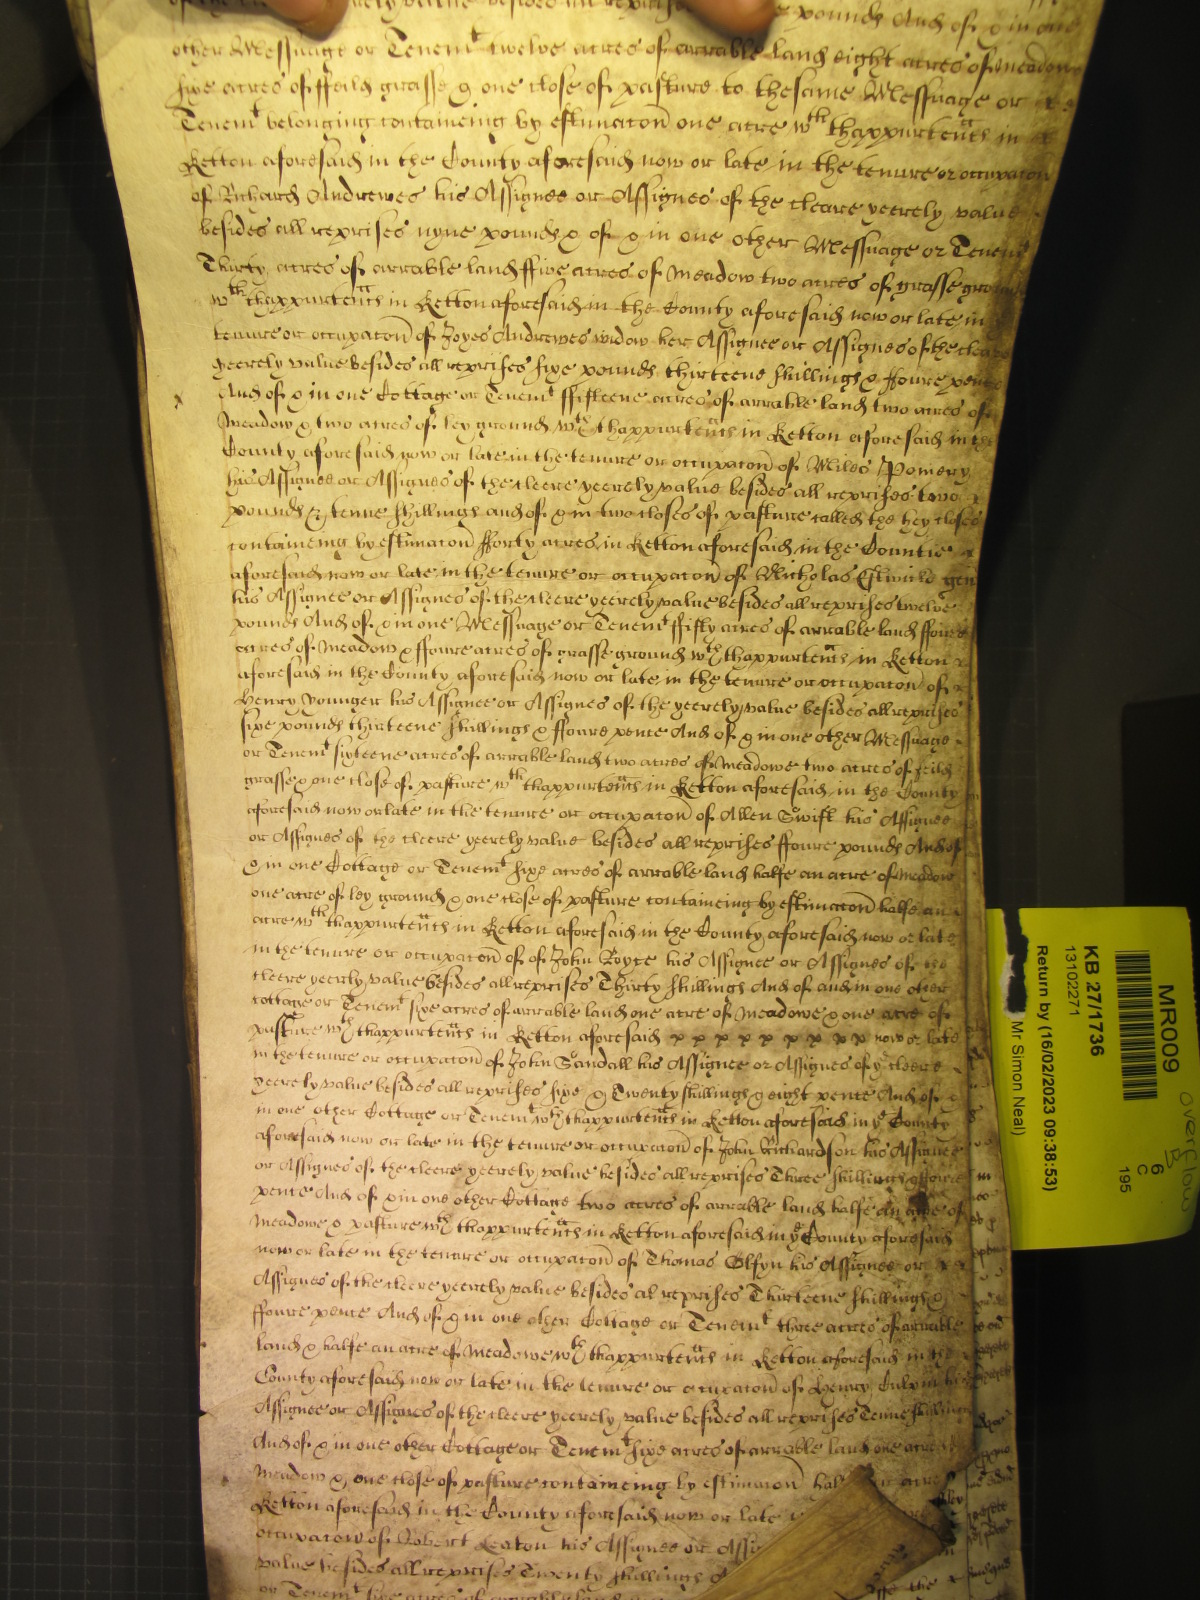 yeerely value besides all reprises pounds And of & in one
other Messuage or Tenemt twelve acres of arrable land eight acres of meadow
sixe acres of ffeild grasse & one close of pasture to thesame Messuage or
Tenemt belonging conteineing by estimacon one acre wth thappurtenncs in
Ketton aforesaid in the County aforesaid now or late in the tenure or occupacon
of Richard Andrewes his Assignee or Assignes of the cleare yeerely value
besides all reprises nyne pounds & of & in one other Messuage or Tenemt
Thirty acres of arrable land ffive acres of meadow two acres of grasse ground
wth thappurtenncs in Ketton aforesaid in the County aforesaid now or late in
tenure or occupacon of Joyes Andrewes widow her Assignee or Assignes of the cleare
yeerely value besides all reprises sixe pounds thirteene shillings & ffoure pence
And of & in one Cottage or Tenemt ffifteene acres of arrable land two acres of
meadow & two acres of ley ground wth thappurtenncs in Ketton aforesaid in the
County aforesaid now or late in the tenure or occupacon of Miles Pomery
his Assignee or Assignes of the cleere yeerely value besides all reprises two
pounds & tenne shillings and of & in two closes of pasture called the hey closes
conteineing by estimacon fforty acres in Ketton aforesaid in the Countie
aforesaid now or late in the tenure or occupacon of Nicholas gen
his Assignee or Assignes of the cleere yeerely value besides all reprises twelve
pounds And of & in one Messuage or Tenemt ffifty acres of arrable land ffoure
acres of meadow & ffoure acres of grasse ground wth thappurtenncs in Ketton
aforesaid in the County aforesaid now or late in the tenure or occupacon of
Henry Younger his Assignee or Assignes of the yeerely value besides all reprises
sixe pounds thirteene shillings & ffoure pence And of & in one other Messuage
or Tenemt sixteene acres of arrable land two acres of meadowe two acres of feild
grasse & one close of pasture wth thappurtenncs in Ketton aforesaid in the County
aforesaid now or late in the tenure or occupacon of Allen Swift his Assignee
or Assignes of the cleere yeerely value besides all reprises ffoure pounds And of
& in one Cottage or Tenemt sixe acres of arrable land halfe an acre of meadow
one acre of ley ground & one close of pasture conteineing by estimacon halfe an
acre wth thappurtenncs in Ketton aforesaid in the County aforesaid now or late
in the tenure or occupacon of of John Royce his Assignee or Assignes of the
cleere yeerly value besides all reprises Thirty shillings And of and in one other
cottage or Tenemt sixe acres of arrable land one acre of meadowe & one acre of
pasture wth thappurtenncs in Ketton aforesaid x x x x x x x x x now or late
in the tenure or occupacon of John Sandall his Assignee or Assignes of ye cleere
yeerely value besides all reprises sixe & Twenty shillings & eight pence And of &
in one other Cottage or Tenemt wth thappurtenncs in Ketton aforesaid in ye County
aforesaid now or late in the tenure or occupacon of John Richardson his Assignee
or Assignes of the cleere yeerely value besides all reprises Three shillings & ffoure
pence And of & in one other Cottage two acres of arrable land halfe an acre of
meadowe & pasture wth thappurtenncs in Ketton aforesaid in ye County aforesaid
now or late in the tenure or occupacon of Thomas his Assignee or
Assignes of the cleere yeerely value besides al reprises Thirteene shillings &
ffoure pence And of & in one other Cottage or Tenemt three acres of arrable
land & halfe an acre of meadowe wth thappurtenncs in Ketton aforesaid in the
County aforesaid now or late in the tenure or occupacon of Henry his
Assignee or Assignes of the cleere yeerely value besides all reprises Tenne shillings
And of & in one other Cottage or Tenemt sixe acres of arrable land one acre of
meadow & one close of pasture conteineing by estimacon halfe an acre
Ketton aforesaid in the County aforesaid now or late
occupacon of Robert Leaton his Assignee or
value besides all reprises Twenty shillings
or Tenemt sixe acres of arrable land
MR009
KB 27/1736
13102271
Return by (16/02/2023 09:38:53)
Mr Simon Neal)
6
C
195
overflow